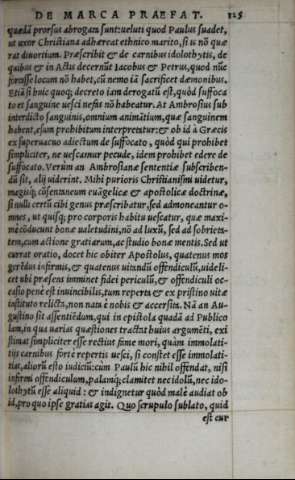 DE MARCA PRAEFAT. 125
quædā prorsus abrogari sunt: ueluti quod Paulus suadet,
ut uxor Christiana adhæreat ethnico marito, si is nō quæ
rat diuortium. Præscribit & de carnibus idolothytis, de
quibus & in Actis decernūt Iacobus & Petrus, quod nūc
processe locum nō habet, cū nemo iā sacrificet dæmonibus.
Etiā si huic quoq; decreto iam derogatū est, quòd suffoca
to et sanguine uesci nefas nō habeatur. At Ambrosius sub
interdicto sanguinis, omnium animātium, quæ sanguinem
habent, esum prohibitum interpretatur: & ob id à Græcis
ex superuacuo adiectum de suffocato, quòd qui prohibet
simpliciter, ne uescamur pecude, idem prohibet edere de
suffocato. Verùm an Ambrosianæ sententiæ subscriben-
dū sit, alij uiderint. Mihi purioris Christianismi uidetur,
magisq; cōsentaneum euāgelicæ & apostolicæ doctrinæ,
si nulli certū cibi genus præscribatur, sed admoneantur o-
mnes, ut quisq; pro corporis habitu uescatur, quæ maxi-
mè cōducunt bonæ ualetudini, nō ad luxū, sed ad sobrieta-
tem, cum actione gratiarum, ac studio bonæ mentis. Sed ut
currat oratio, docet hic obiter Apostolus, quatenus mos
gerēdus infirmis, & quatenus uitandū offendiculū, uideli-
cet ubi præsens imminet fidei periculū, & offendiculi oc-
casio penè est inuincibilis, tum reperta & ex pristino uitæ
instituto relicta, non nata è nobis & accersita. Nā an Au-
gustino sit assentiēdum, qui in epistola quadā ad Publico
lam, in qua uarias quæstiones tractat huius argumēti, exi
stimat simpliciter esse rectius fame mori, quàm immolati-
tijs carnibus forte repertis uesci, si constet esse immolati-
tias, aliorū esto iudiciū: cùm Paulū hic nihil offendat, nisi
infirmi offendiculum, palamq; clamitet nec idolū, nec ido-
lothytū esse aliquid: & indignetur quòd malè audiat ob
id, pro quo ipse gratias agit. Quo scrupulo sublato, quid
est cur